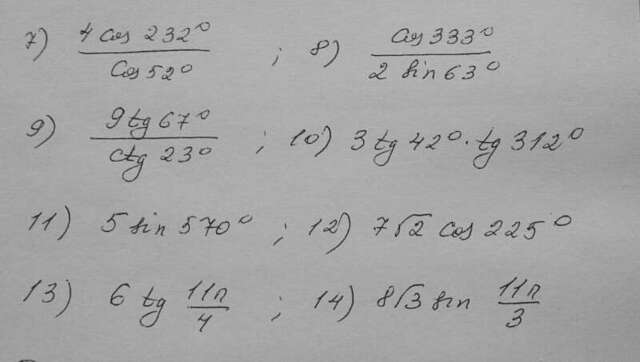 7) 4 cos 232° / cos 52° ; 8) cos 333° / 2 sin 63°
9) 9 tg 67° / ctg 23° ; 10) 3 tg 42° · tg 312°
11) 5 sin 570° ; 12) 7√2 cos 225°
13) 6 tg 11π/4 ; 14) 8√3 sin 11π/3